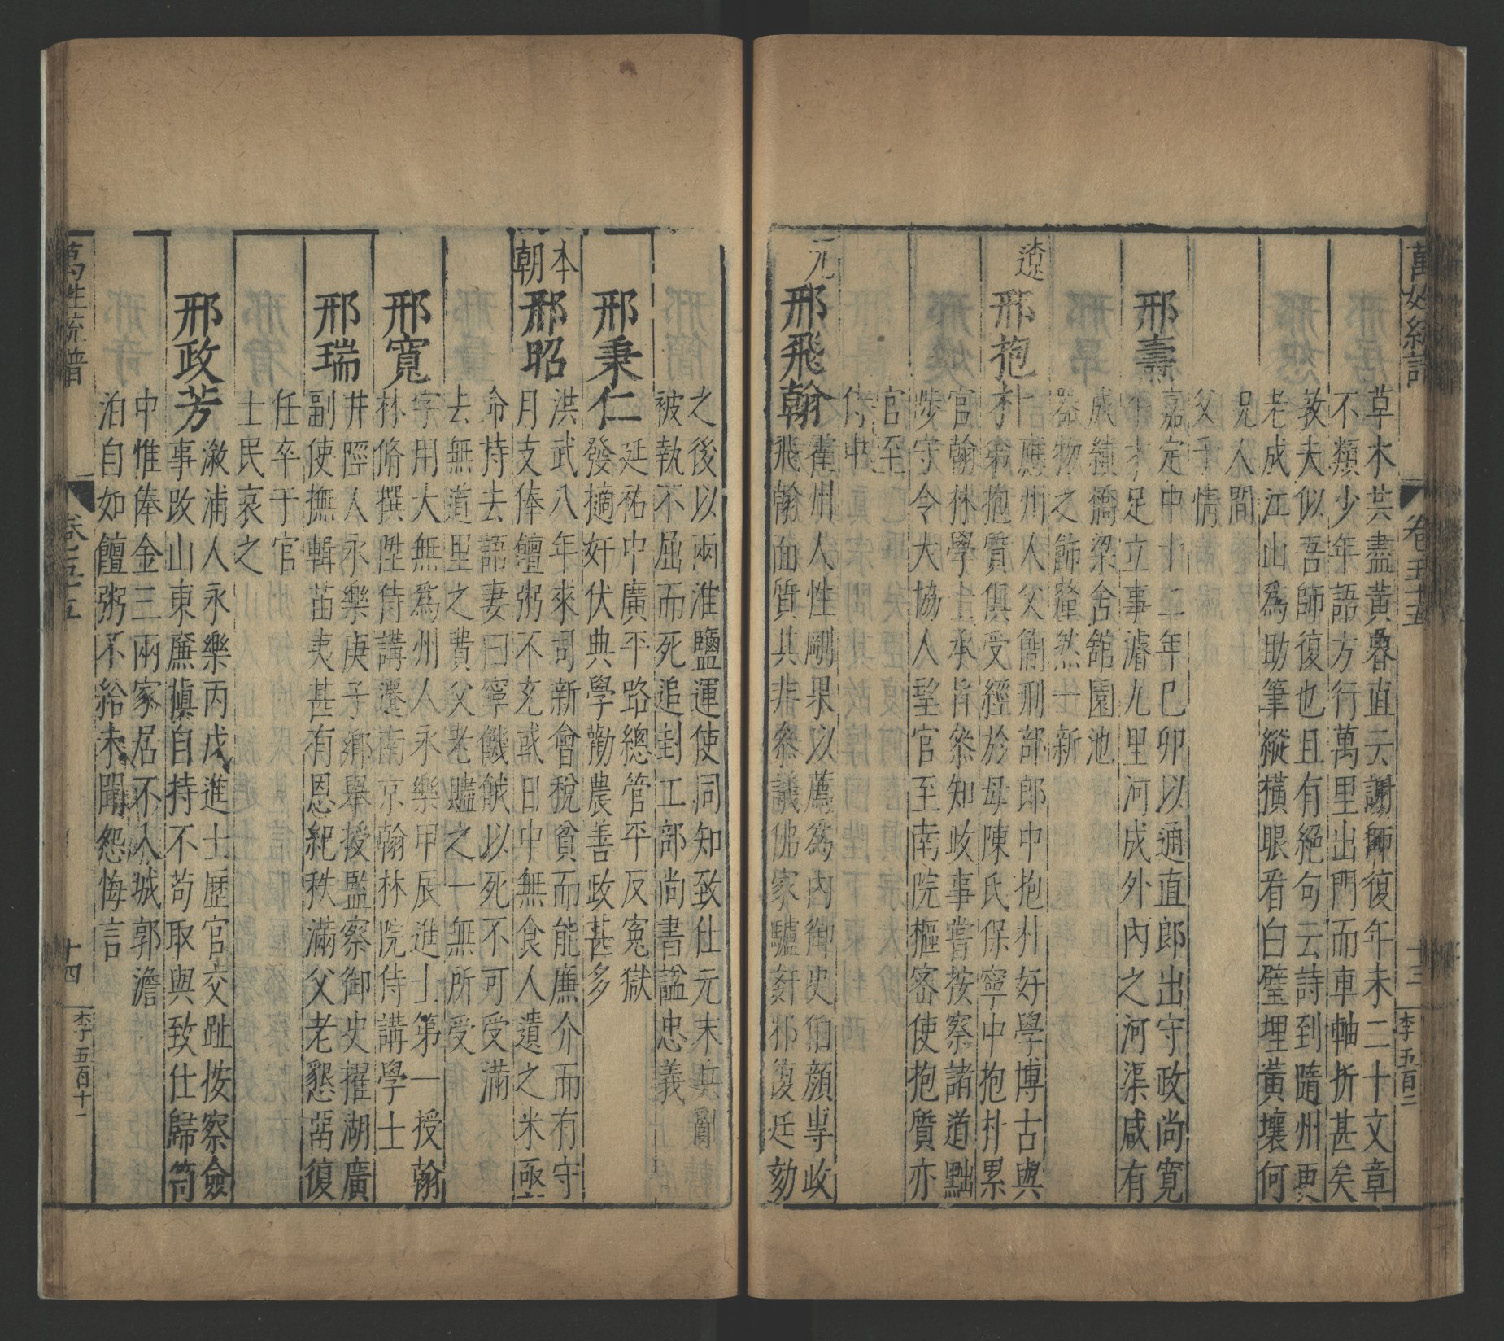 萬姓統譜 卷五十五 十三 李五百二
草木共盡黃暮直云謝師復年未二十文章
不類少年語方行萬里出門而車軸折甚矣
敦夫似吾師復也且有絕句云詩到隨州更
老成江山為助筆縱橫眼看白璧埋黃壤何
況人間
父子情
邢壽
嘉定中十二年己卯以通直郎出守政尚寬
不才足立事濬九里河成外內之河渠咸有
成績橋梁舍館園池
器物之飾整然一新
遼
邢抱朴
應州人父簡刑部郎中抱朴好學博古與
弟抱質俱受經於母陳氏保寧中抱朴累
官翰林學士承旨叅知政事嘗按察諸道黜
陟守令大協人望官至南院樞密使抱質亦
官至
侍中
元
邢飛翰
衛州人性剛果以薦為內御史伯顏專政
飛翰面質其非叅議佛家驢奸邪復廷劾
之後以兩淮鹽運使同知致仕元末兵亂
被執不屈而死追封工部尚書諡忠義
邢秉仁
延祐中廣平路總管平反冤獄
發擿奸伏典學勸農善政甚多
本朝
邢昭
洪武八年來司新會稅貧而能廉介而有守
月支俸饘粥不充或日中無食人遺之米亟
命持去語妻曰寧饑餓以死不可受滿
去無道里之費父老贐之一無所受
邢寬
字用大無為州人永樂甲辰進士第一授翰
林脩撰陞侍講遷南京翰林院侍講學士
邢瑞
井陘人永樂庚子鄉舉授監察御史擢湖廣
副使撫輯苗夷甚有恩紀秩滿父老懇留復
任卒于官
士民哀之
邢政芳
漵浦人永樂丙戌進士歷官交趾按察僉
事改山東廉慎自持不苟取與致仕歸笥
中惟俸金三兩家居不入城郭澹
泊自如饘粥不給未聞怨悔言
萬姓統譜 卷五十五 十四 李丁五百十一